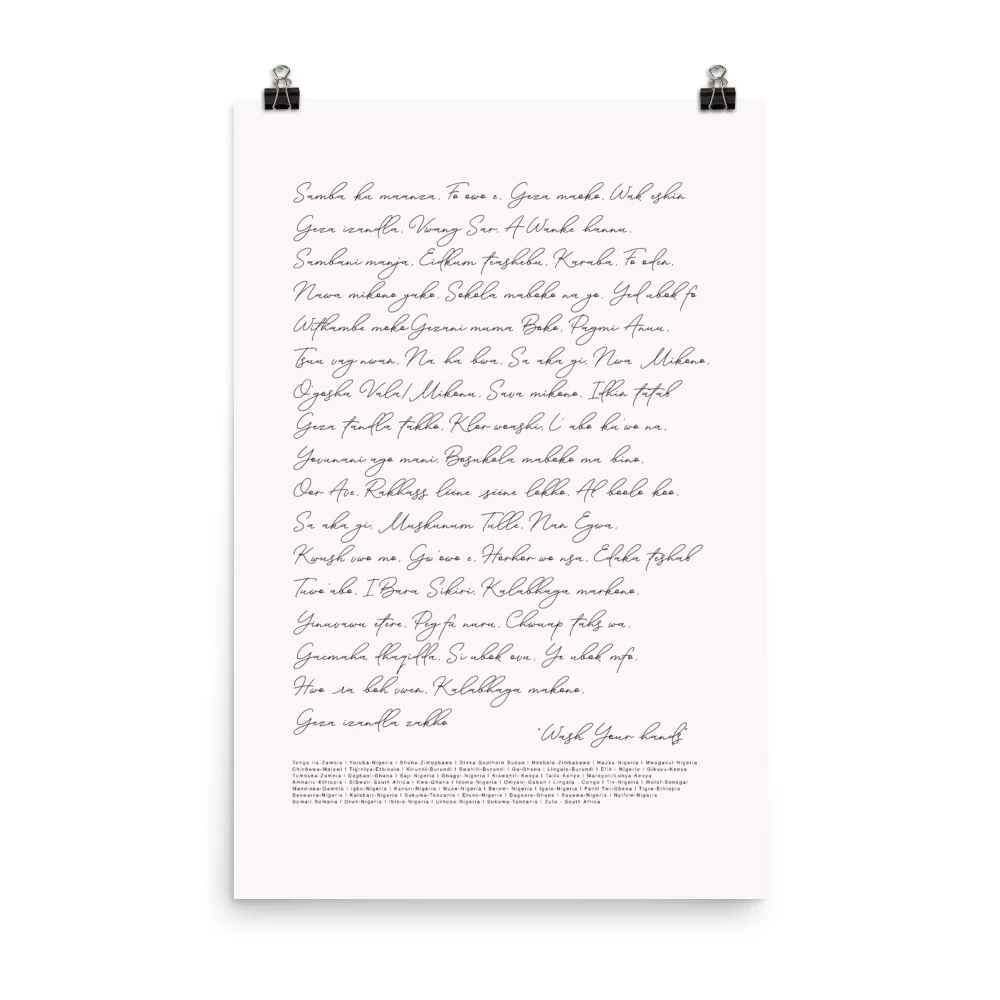 Samba ku maanza, Fo owo e, Geza maoko, Wak eshin
Geza izandla, Vwang Sar, A Wanke hannu,
Sambani manja, Eidkum teashebu, Karaba, Fo oden,
Nawa mikono yako, Sokola maboko na yo, Yed ubok fo
Withambe moko Gezani muma Boko, Pagmi Anuu,
Tsuu vag nwan, Na ha bwa, Sa aka gi, Nwa Mikono,
O'gosha Vala/Mikonu, Sava mikono, Idhin tatab
Geza tandla takho, Klor woashi, L' abo ku'wo na,
Yovunani ago mani, Bosukola maboko ma bino,
Oor Ave, Rakhass liine siine lokho, Al boolo koo,
Sa aka gi, Muskunum Tulle, Nan Egwa,
Kwush vwo mo, Gw'owo e, Horhor wo nsa, Edaka teshab
Tuwo'abo, I Bara Sikiri, Kalabhaga markono,
Yinuvawu etere, Peg fa nuru, Chwuap tahs wa,
Gacmaha dhaqidda, Si ubok ovu, Ye ubok mfo,
Hwo ra boh vwen, Kalabhaga makono,
Geza izandla zakho
"Wash Your hands"
Tonga ila-Zambia | Yoruba-Nigeria | Shona-Zimbabawe | Dinna-Southern Sudan | Ndebele-Zimbabawe | Hausa-Nigeria | Mwagavul-Nigeria
Chichewa-Malawi | Tigriiya-Ethiopia | Kirundi-Burundi | Swahili-Burundi | Ga-Ghana | Lingala-Burundi | Efik - Nigeria | Gikuyu-Kenya
Tumbuka-Zambia | Dagbani-Ghana | Baji-Nigeria | Gbagyi-Nigeria | Kiswahili-Kenya | Taita-Kenya | Maragoli/Luhya-Kenya
Amharic-Ethiopia | SiSwati-South Africa | Ewe-Ghana | Idoma-Nigeria | Omyeni-Gabon | Lingala - Congo | Tiv-Nigeria | Wolof-Senegal
Mandinka-Gambia | Igbo-Nigeria | Kanuri-Nigeria | Nupe-Nigeria | Berom- Nigeria | Igala-Nigeria | Fanti Twi-Ghana | Tigre-Ethiopia
Bekwarra-Nigeria | Kalabari-Nigeria | Sukuma-Tanzania | Etuno-Nigeria | Dagaare-Ghana | Sayawa-Nigeria | Nyifom-Nigeria
Somali-Somalia | Oron-Nigeria | Ibibio-Nigeria | Urhobo-Nigeria | Sukuma-Tanzania | Zulu - South Africa